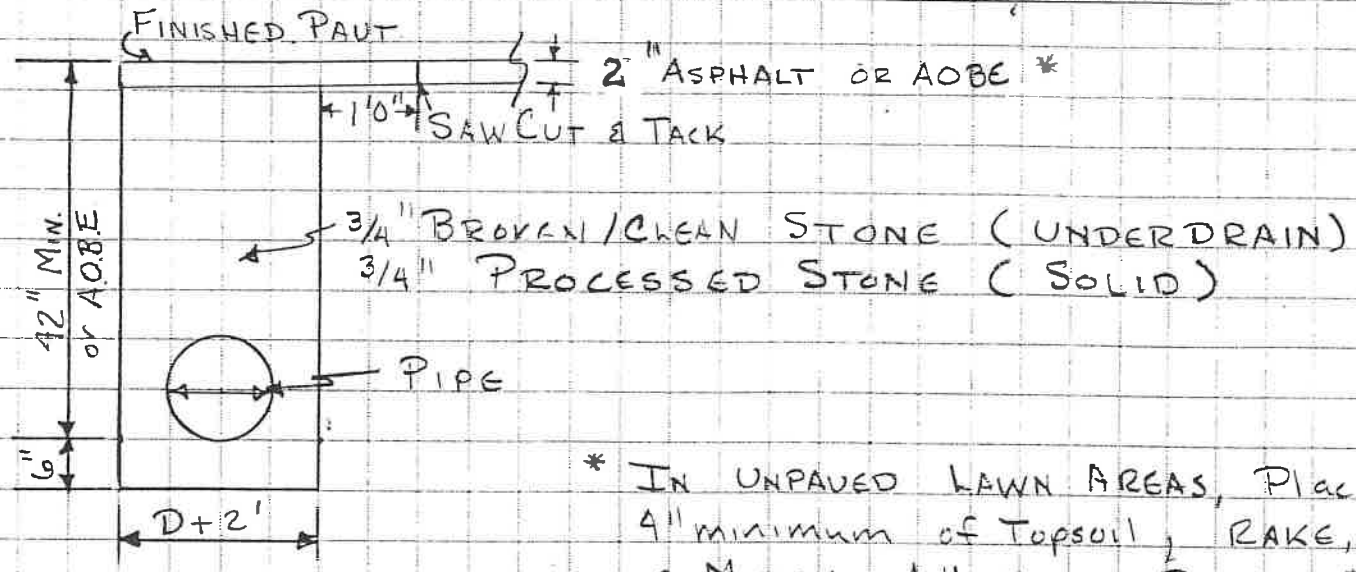 FINISHED PAVT
2" ASPHALT OR AOBE *
1'0"
SAW CUT & TACK
3/4" BROKEN/CLEAN STONE (UNDERDRAIN)
3/4" PROCESSED STONE (SOLID)
42" MIN.
or A.O.B.E
PIPE
6"
D+2'
* IN UNPAVED LAWN AREAS, Plac
4" minimum of Topsoil, RAKE,